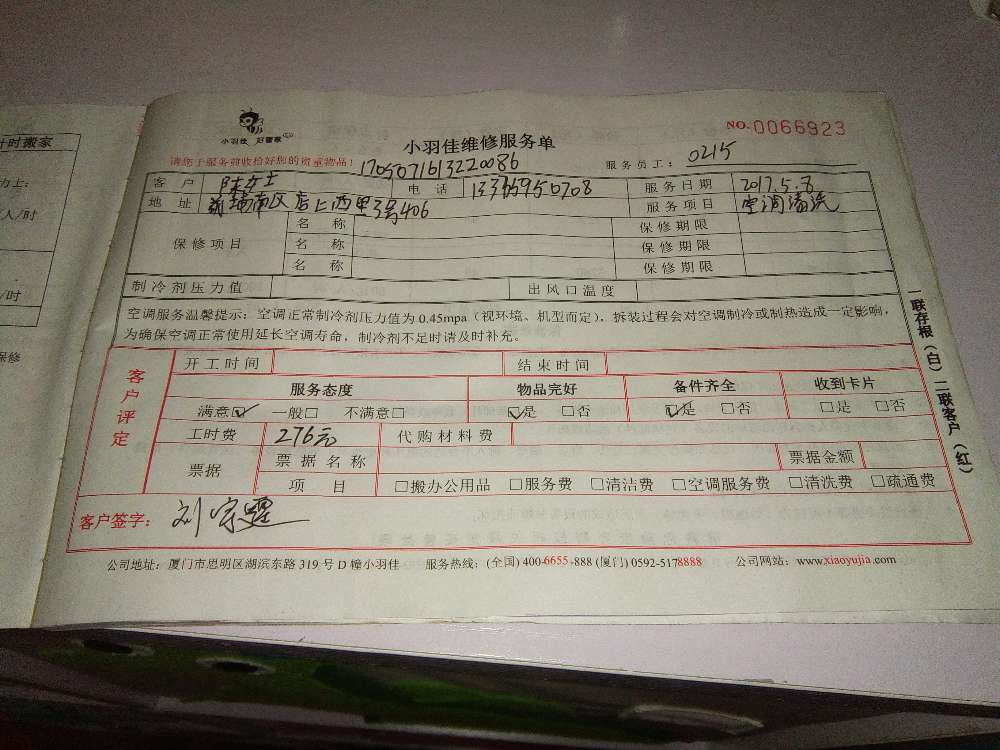 计时搬家
力士：
/人/时
/时
保修
小羽佳 好管家
小羽佳维修服务单
NO.0066923
请您于服务前收拾好您的贵重物品！
1705071613220086
服务员工：0215
客户 陈女士 电话 服务日期 2017.5.8
地址 店上西里3号406 服务项目 空调清洗
保修项目 名称 保修期限
名称 保修期限
名称 保修期限
制冷剂压力值 出风口温度
空调服务温馨提示：空调正常制冷剂压力值为0.45mpa（视环境、机型而定），拆装过程会对空调制冷或制热造成一定影响，
为确保空调正常使用延长空调寿命，制冷剂不足时请及时补充。
客户评定
开工时间 结束时间
服务态度 物品完好 备件齐全 收到卡片
满意☑ 一般□ 不满意□ ☑是 □否 ☑是 □否 □是 □否
工时费 276元 代购材料费
票据 票据名称 票据金额
项目 □搬办公用品 □服务费 □清洁费 □空调服务费 □清洗费 □疏通费
客户签字：
一联存根（白）二联客户（红）
公司地址：厦门市思明区湖滨东路319号D幢小羽佳 服务热线：(全国) 400-6655-888 (厦门) 0592-5178888 公司网站：www.xiaoyujia.com